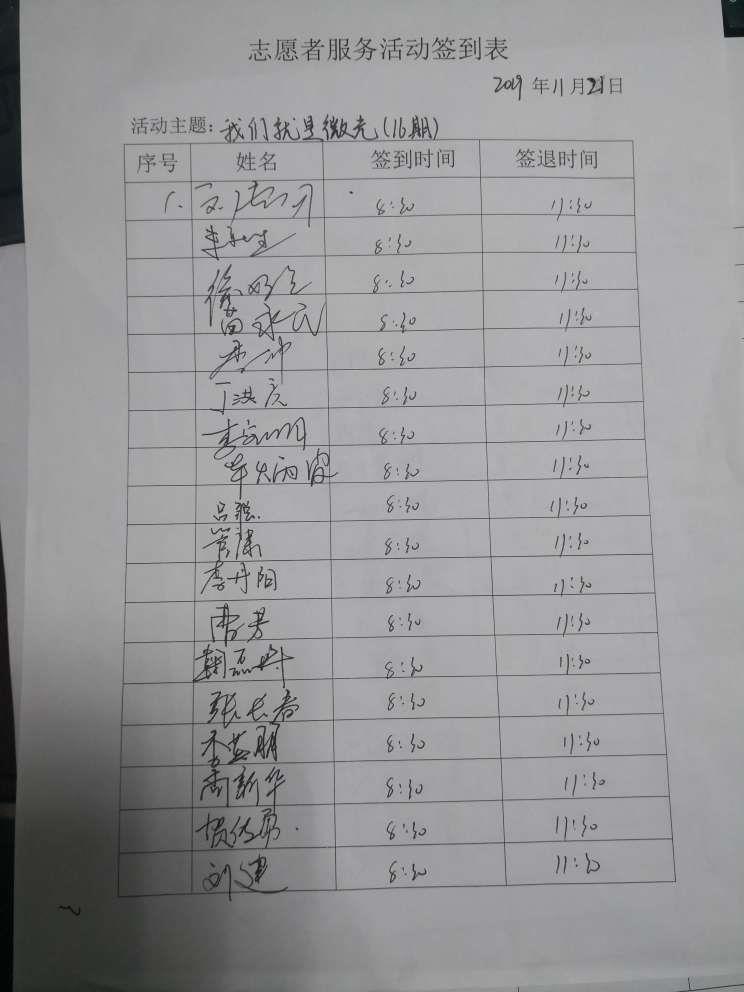 志愿者服务活动签到表
2019年11月21日
活动主题：我们就是微光(16期)
序号 姓名 签到时间 签退时间
1. 8:30 11:30
8:30 11:30
徐 8:30 11:30
苗永民 8:30 11:30
8:30 11:30
丁洪亮 8:30 11:30
李 明 8:30 11:30
8:30 11:30
吕强 8:30 11:30
管潇 8:30 11:30
李丹阳 8:30 11:30
曹芳 8:30 11:30
鞠磊 8:30 11:30
张长春 8:30 11:30
李 朋 8:30 11:30
周新华 8:30 11:30
贺传勇 8:30 11:30
刘建 8:30 11:30